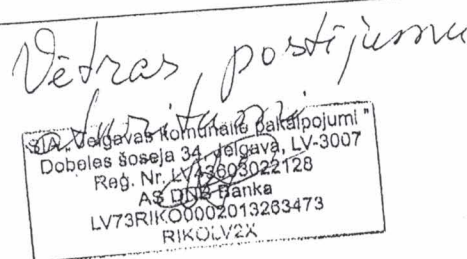 Vētras postījumu
SIA "Jelgavas komunālie pakalpojumi"
Dobeles šoseja 34, Jelgava, LV-3007
Reģ. Nr. LV43603022128
AS DNB Banka
LV73RIKO0002013263473
RIKOLV2X